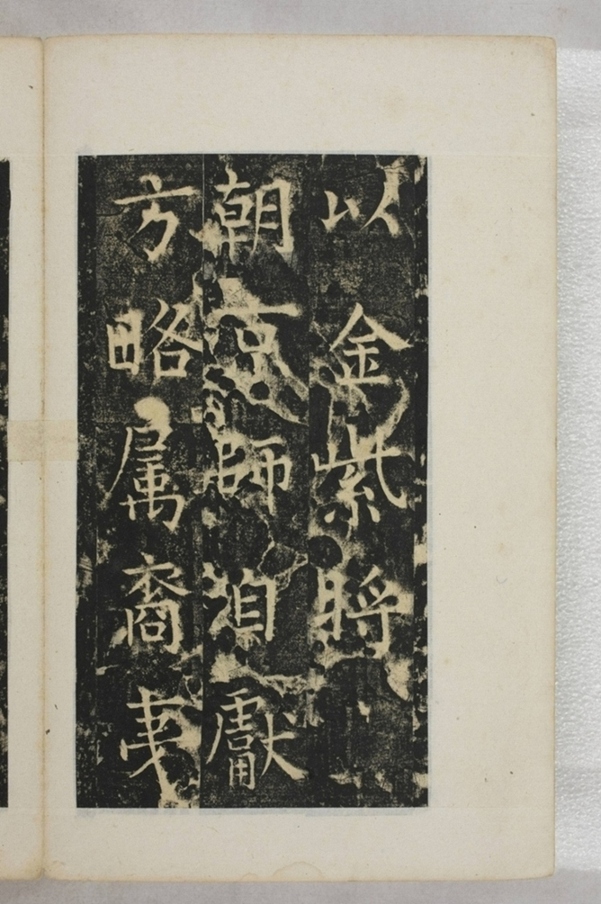 以金紫將
朝京師洎獻
方略属裔夷